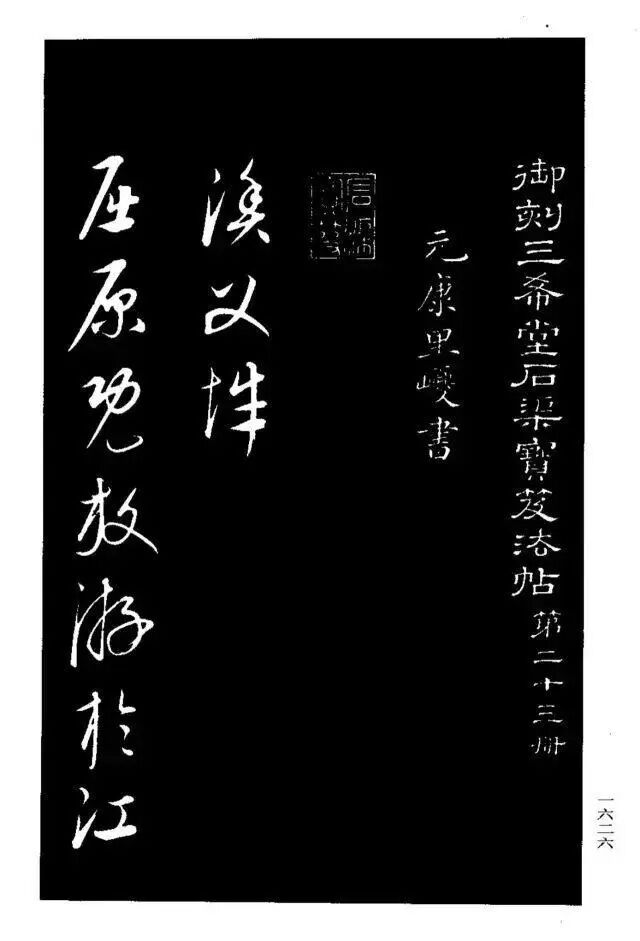 御刻三希堂石渠寶笈法帖 第二十三冊
元康里巎書
漁父辭
屈原既放游於江
一六二六